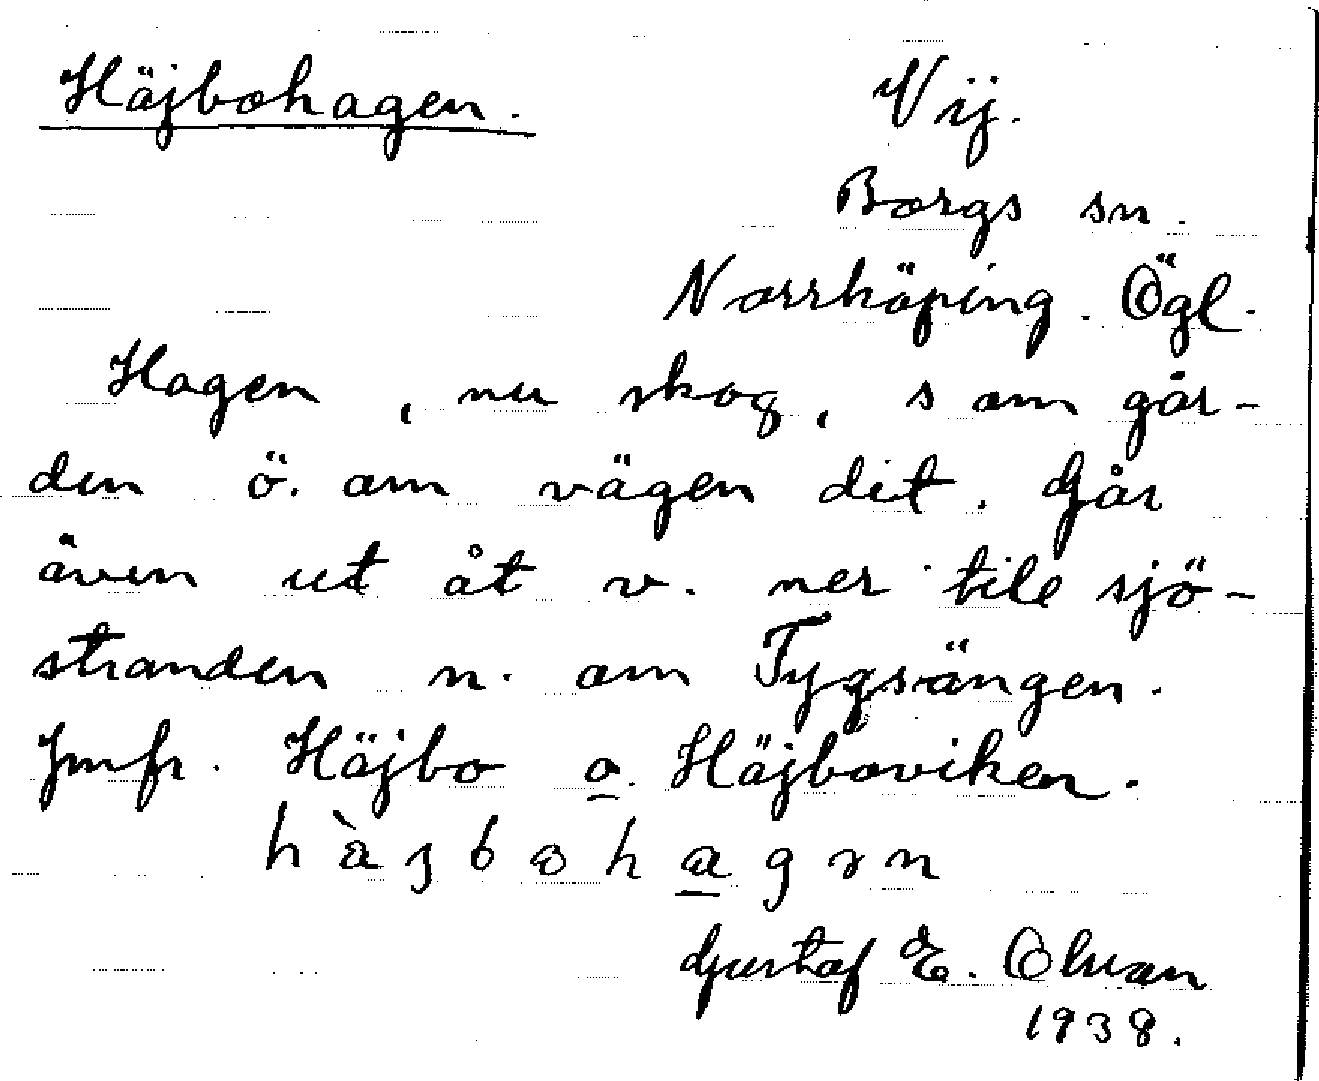 Häjbohagen.
Vij.
Borgs sn.
Norrköping. Ögl.
Hagen, nu skog, s om går-
den ö. om vägen dit. Går
även ut åt v. ner till sjö-
stranden n. om Tygsängen.
Jmfr. Häjbo o. Häjboviken.
Gustaf E. Olsson
1938.